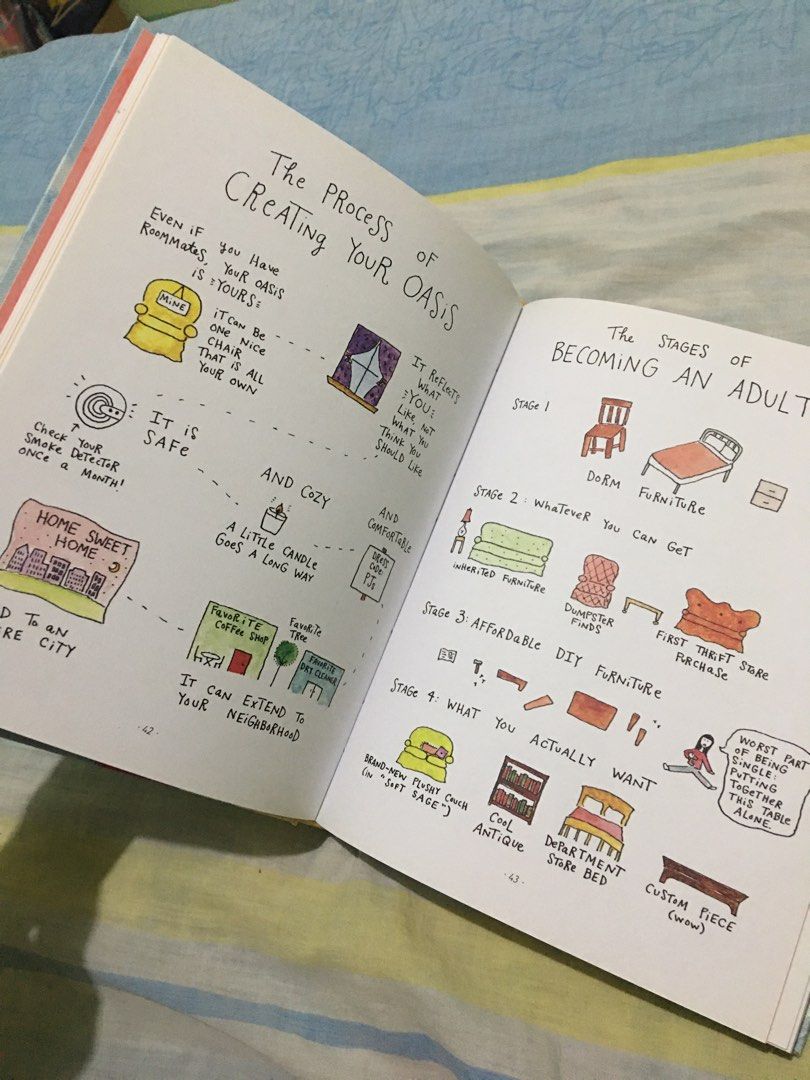 The PROCESS OF
CREATING YOUR OASIS
EVEN IF YOU HAVE
ROOMMATES, YOUR OASIS
IS YOURS
MINE
IT CAN BE
ONE NICE
CHAIR
THAT IS ALL
YOUR OWN
IT REFLECTS
WHAT
YOU
LIKE, NOT
WHAT YOU
THINK YOU
SHOULD LIKE
IT IS
SAFE
CHECK YOUR
SMOKE DETECTOR
ONCE A MONTH!
AND COZY
A LITTLE CANDLE
GOES A LONG WAY
AND
COMFORTABLE
DRESS
CODE:
PJs
FAVORITE
COFFEE SHOP
FAVORITE
TREE
FAVORITE
DRY CLEANER
IT CAN EXTEND TO
YOUR NEIGHBORHOOD
HOME SWEET
HOME
D TO AN
IRE CITY
·42·
The STAGES OF
BECOMING AN ADULT
STAGE 1
DORM FURNITURE
STAGE 2: WHATEVER YOU CAN GET
INHERITED FURNITURE
DUMPSTER
FINDS
FIRST THRIFT STORE
PURCHASE
STAGE 3: AFFORDABLE DIY FURNITURE
WORST PART
OF BEING
SINGLE:
PUTTING
TOGETHER
THIS TABLE
ALONE.
STAGE 4: WHAT YOU ACTUALLY WANT
BRAND-NEW PLUSHY COUCH
(IN "SOFT SAGE")
COOL
ANTIQUE
DEPARTMENT
STORE BED
CUSTOM PIECE
(WOW)
·43·